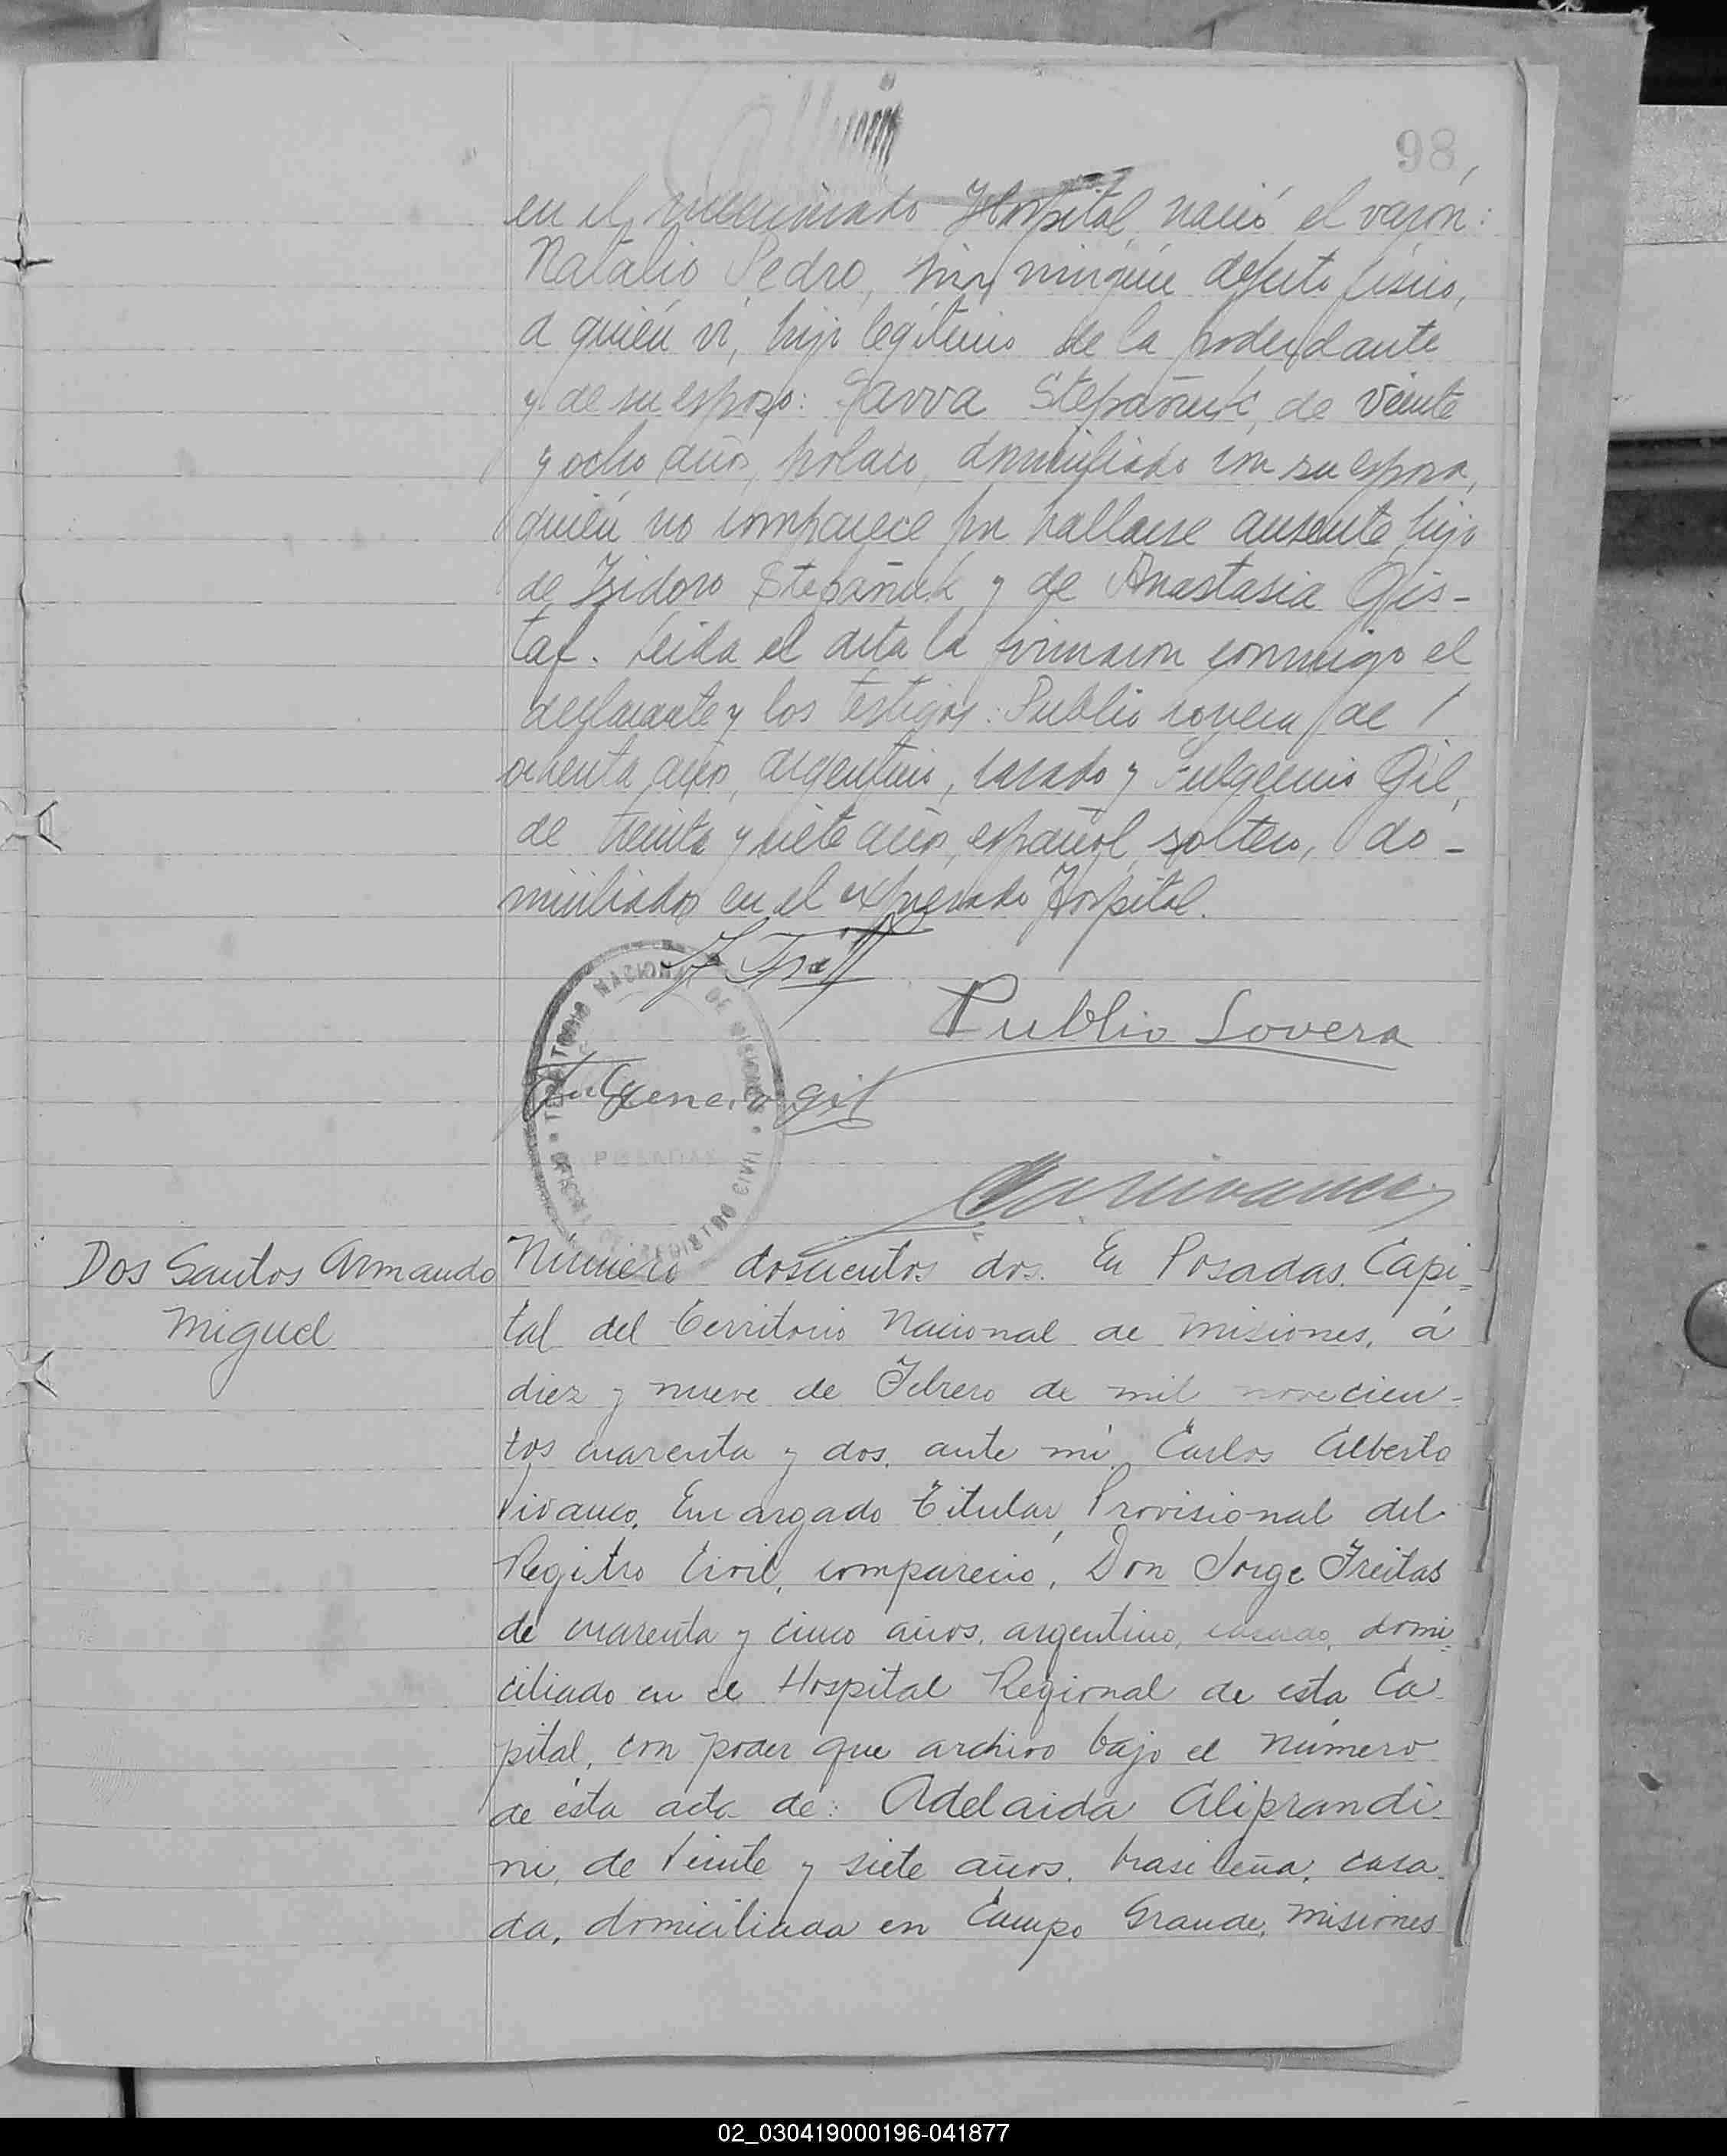 98
en el mencionado Hospital, nació el varón:
Natalio Pedro, sin ningún defecto físico,
a quién ví, hijo legítimo de la poderdante
y de su esposo: Savva Stepañuk, de veinte
y ocho años, polaco, domiciliado con su esposa,
quién no comparece por hallarse ausente, hijo
de Isidoro Stepañuk y de Anastasia
Leida el acta la firmaron conmigo el
declarante y los testigos: Publio Lovera, de
ochenta años, argentino, casado y Fulgencio Gil,
de treinta y siete años, español, soltero, do-
miciliados en el expresado Hospital.
TERRITORIO NACIONAL DE MISIONES
Publio Lovera
Fulgencio gil
POSADAS
OFICINA DE REGISTRO CIVIL
Dos Santos Armando
Miguel
Número doscientos dos. En Posadas, Capi-
tal del Territorio Nacional de Misiones, á
diez y nueve de Febrero de mil novecien-
tos cuarenta y dos, ante mí, Carlos Alberto
Vivanco, Encargado Titular Provisional del
Registro Civil, compareció, Don Jorge Freitas
de cuarenta y cinco años, argentino, casado, domi-
ciliado en el Hospital Regional de esta Ca
pital, con poder que archivo bajo el número
de ésta acta de: Adelaida Aliprandi
ni, de veinte y siete años, brasileña, casa
da, domiciliada en Campo Grande, Misiones
02_030419000196-041877